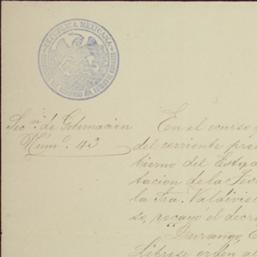 REPUBLICA MEXICANA
Sec.n de Gobernación
Num.o 43
En el curso
del corriente
bierno del Esta
tacion de la
la Sra. Valdivies
se, recayo el decre
"Durango E
Librese orden al